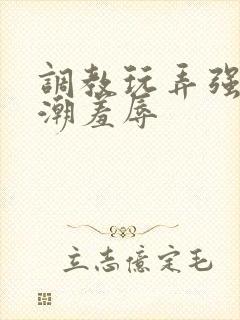 調教玩弄强
潮羞辱
立志億定毛